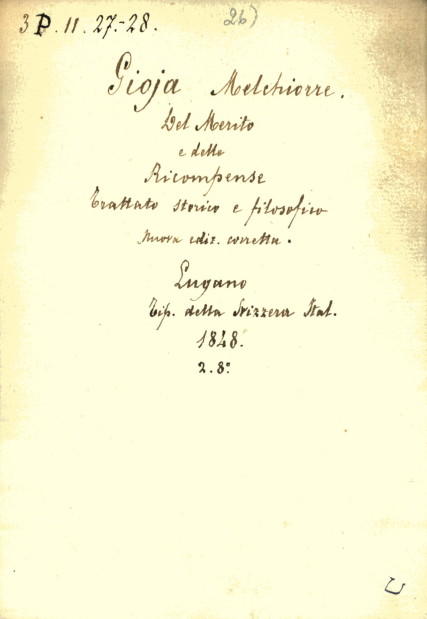 3 P. 11. 27.-28.
26)
Gioja Melchiorre.
Del Merito
e delle
Ricompense
Trattato storico e filosofico
Nuova ediz. corretta.
Lugano
Tip. della Svizzera Ital.
1848.
2. 8°